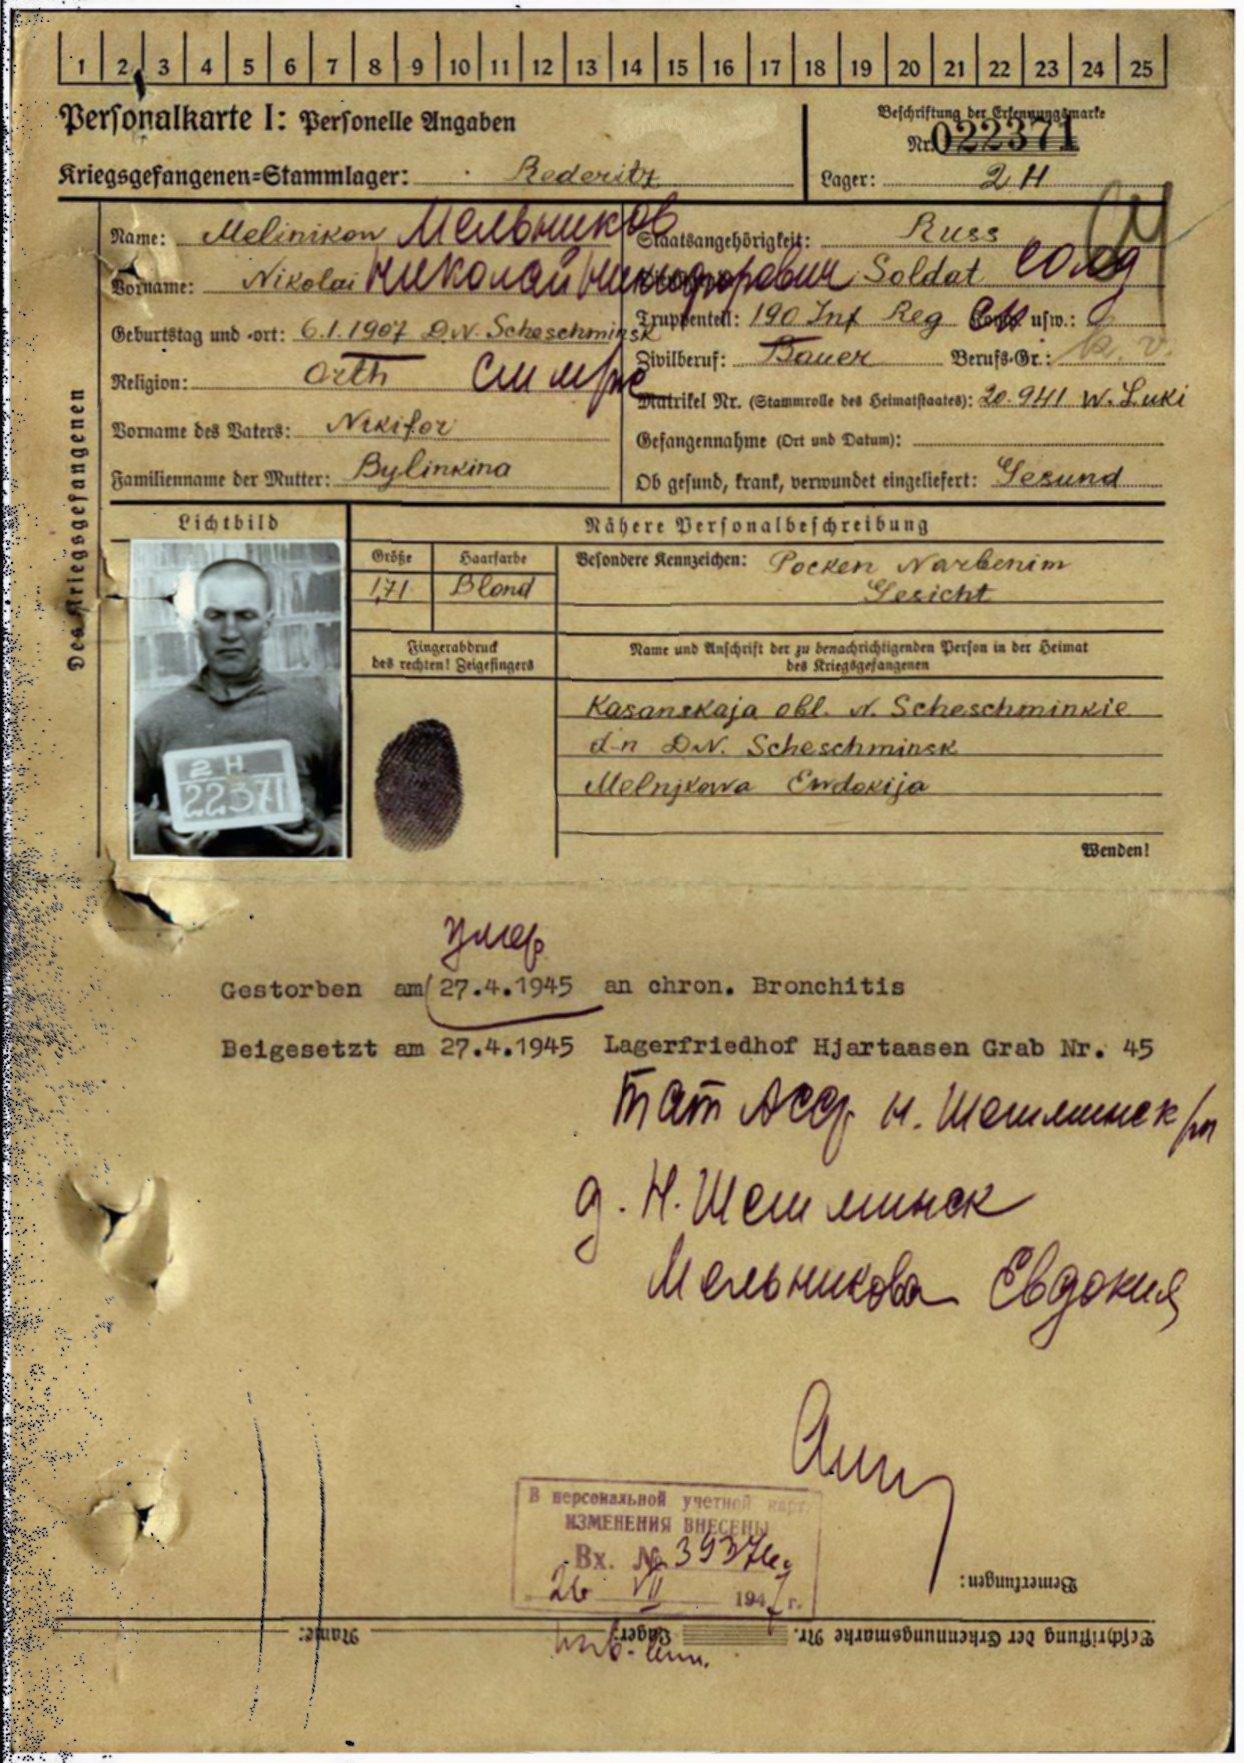 1 2 3 4 5 6 7 8 9 10 11 12 13 14 15 16 17 18 19 20 21 22 23 24 25
Personalkarte I: Personelle Angaben
Beschriftung der Erkennungsmarke
Nr. 022371
Kriegsgefangenen-Stammlager: Rederitz
Lager: 2 H
Des Kriegsgefangenen
Name: Melinikow Мельников
Staatsangehörigkeit: Russ
Vorname: Nikolai Николай Никифорович
Soldat солд
Geburtstag und -ort: 6.1.1907 D.N. Scheschminsk
Truppenteil: 190 Inf Reg Komp. usw.:
Religion: Orth
Zivilberuf: Bauer Berufs-Gr.: k. v.
Matrikel Nr. (Stammrolle des Heimatstaates): 20.941 W. Luki
Vorname des Vaters: Nikifor
Gefangennahme (Ort und Datum):
Familienname der Mutter: Bylinkina
Ob gesund, krank, verwundet eingeliefert: Gesund
Lichtbild
Nähere Personalbeschreibung
Größe Haarfarbe
Besondere Kennzeichen: Pocken Narbenim
171 Blond
Gesicht
Fingerabdruck
des rechten! Zeigefingers
Name und Anschrift der zu benachrichtigenden Person in der Heimat
des Kriegsgefangenen
Kasanskaja obl. N. Scheschminkie
d-n D.N. Scheschminsk
Melnjkowa Ewdokija
2 H
22371
Wenden!
умер
Gestorben am 27.4.1945 an chron. Bronchitis
Beigesetzt am 27.4.1945 Lagerfriedhof Hjartaasen Grab Nr. 45
Тат АССР Н. Шешминск р/н
д. Н. Шешминск
Мельникова Евдокия
В персональной учетной карт.
ИЗМЕНЕНИЯ ВНЕСЕНЫ
Вх. №
26 VII 1947 г.
Bemerkungen:
Name:
Lager:
Beschriftung der Erkennungsmarke Nr.